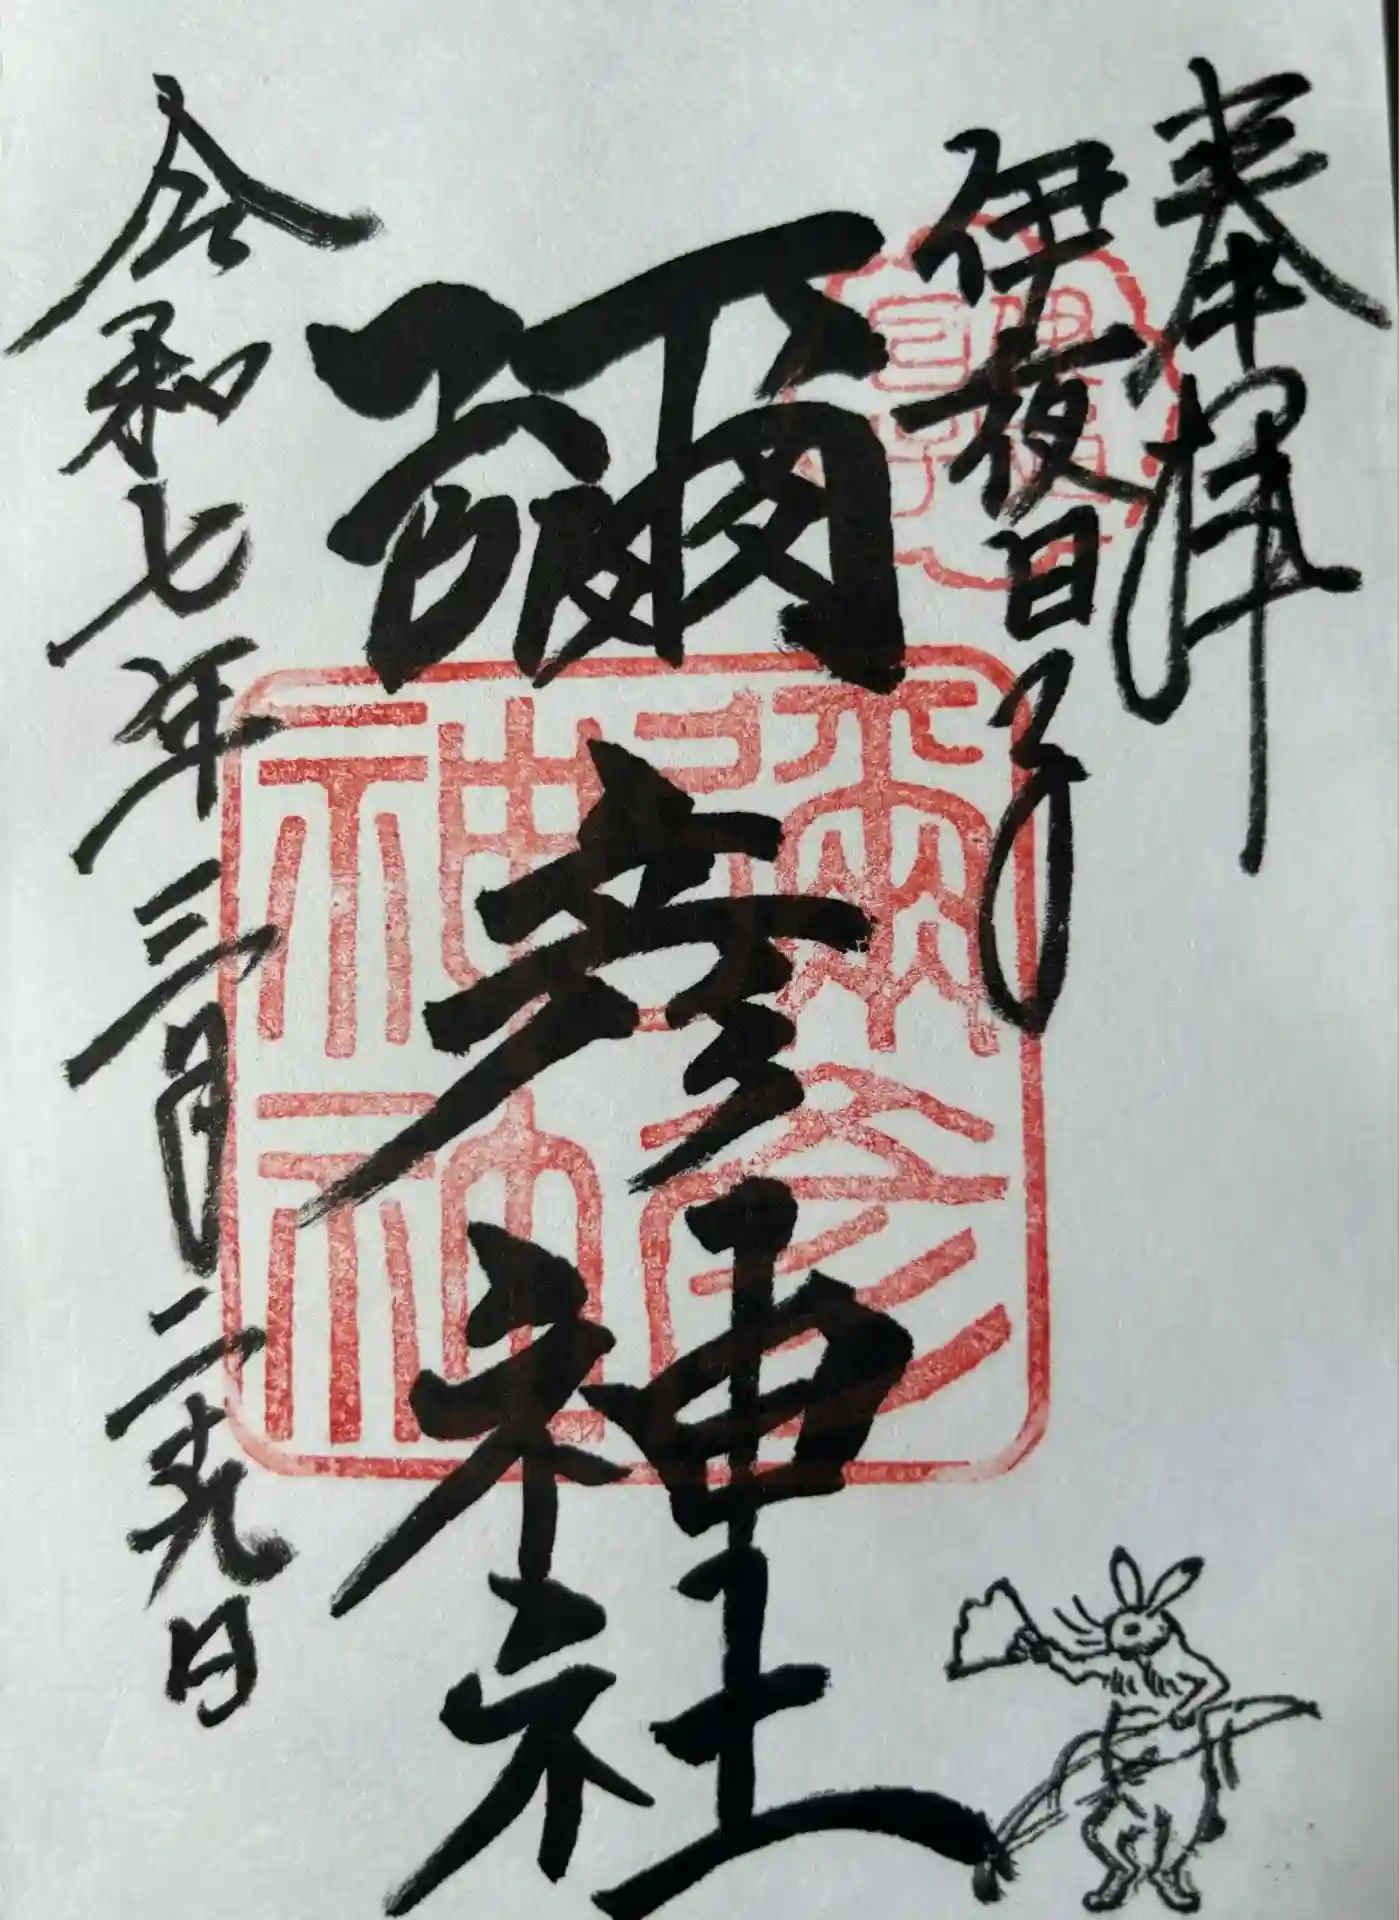 奉拝
伊夜日子
彌彦神社
令和七年三月二十九日